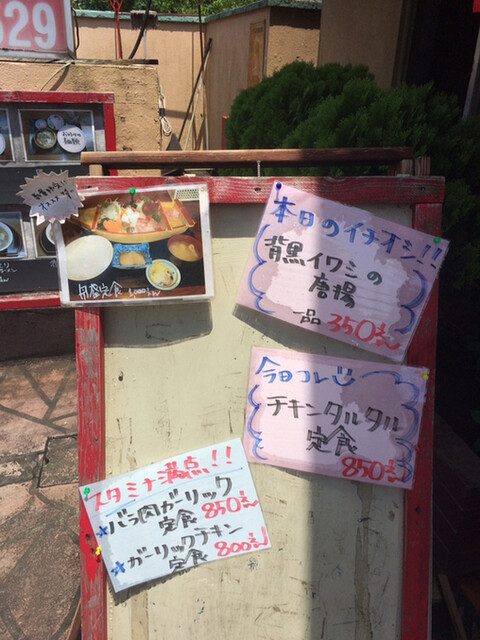 529
本日のイチオシ!!
背黒イワシの
唐揚
一品 350えん
今日コレ
チキンタルタル
定食
850えん
スタミナ満点!!
★バラ肉ガーリック
定食 850えん
★ガーリックチキン
定食 800えん